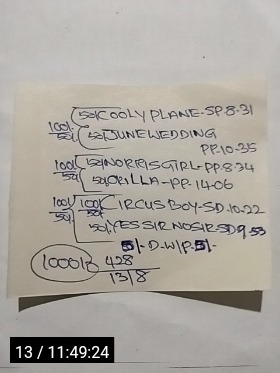 50/ COOLY PLANE-SP.8-31
100/- 50/- 50/ JUNEWEDDING
PP.10-35
100/- 50/- 50/ NORRISGIRL-PP-8-34
50/ ORILLA-PP-14-06
100/- 50/- 100/ CIRCUS BOY-SD.10.22
50/ YES SIR NO SIR-SD9-53
5/- D-W/P-5/-
428
13/8
13 / 11:49:24